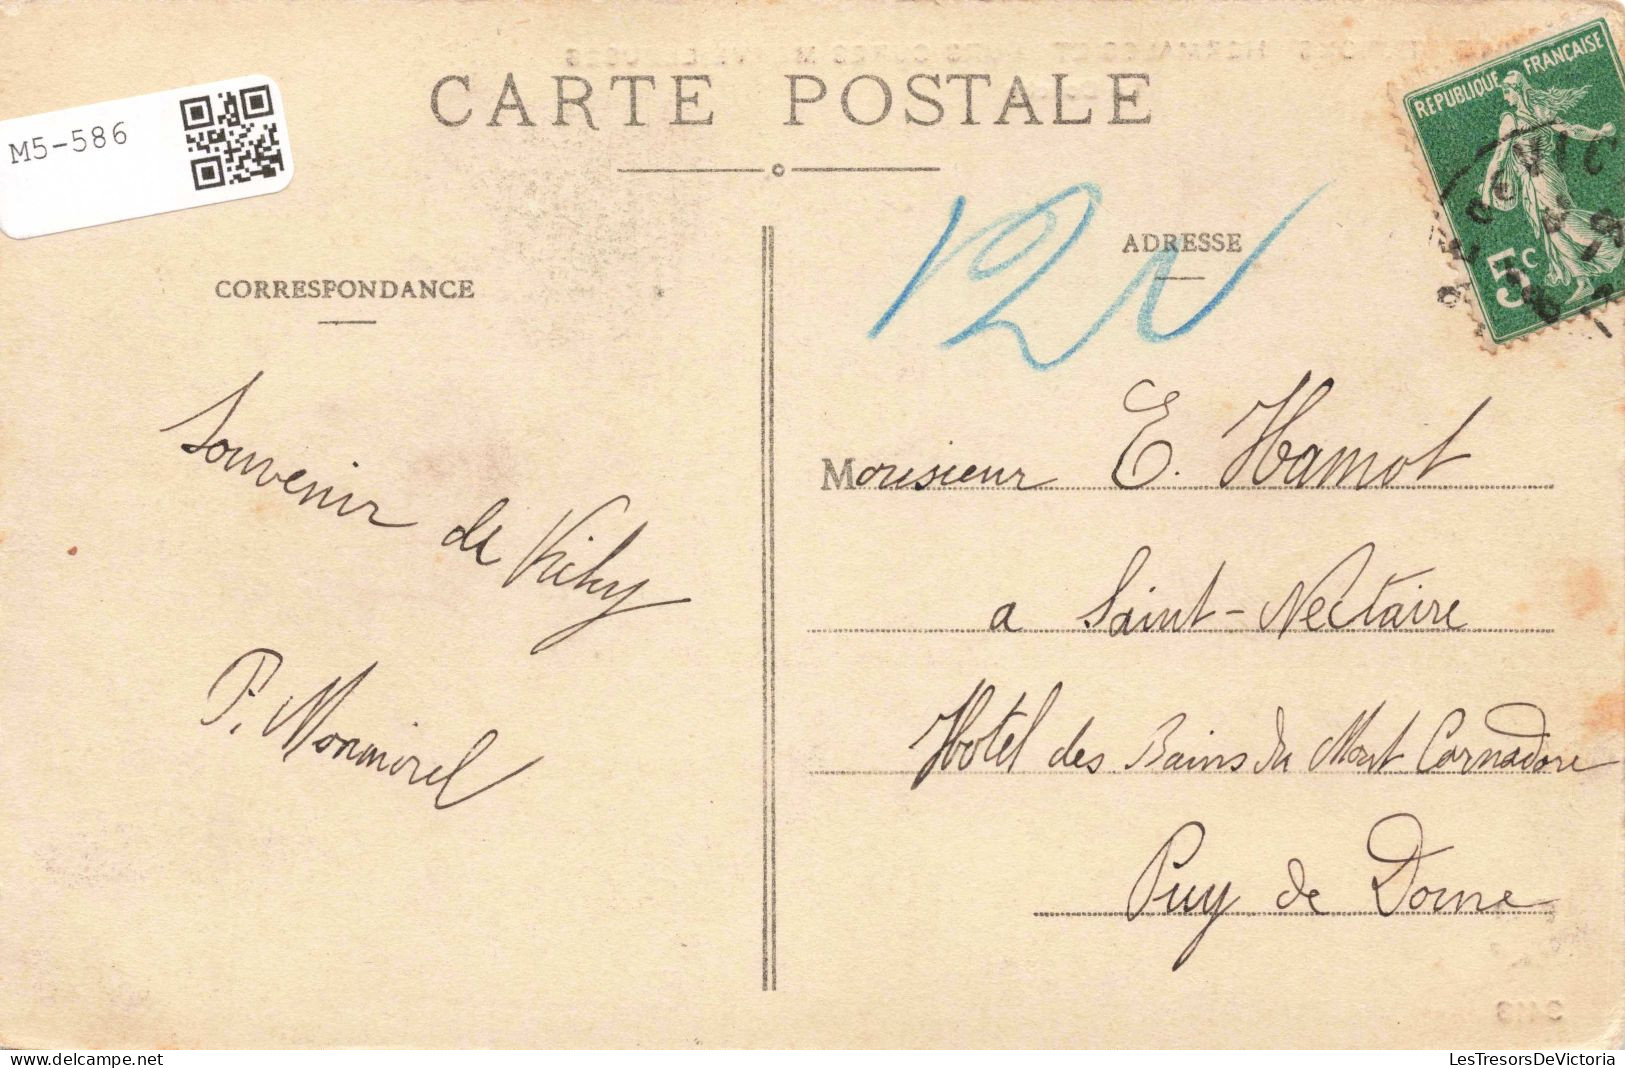 M5-586
CARTE POSTALE
REPUBLIQUE FRANÇAISE
5c
CORRESPONDANCE
ADRESSE
Souvenir de Vichy
P. Monmirel
Monsieur E. Hamot
a Saint-Nectaire
Hotel des Bains du Mont Cornadore
Puy de Dome
2113
LesTresorsDeVictoria